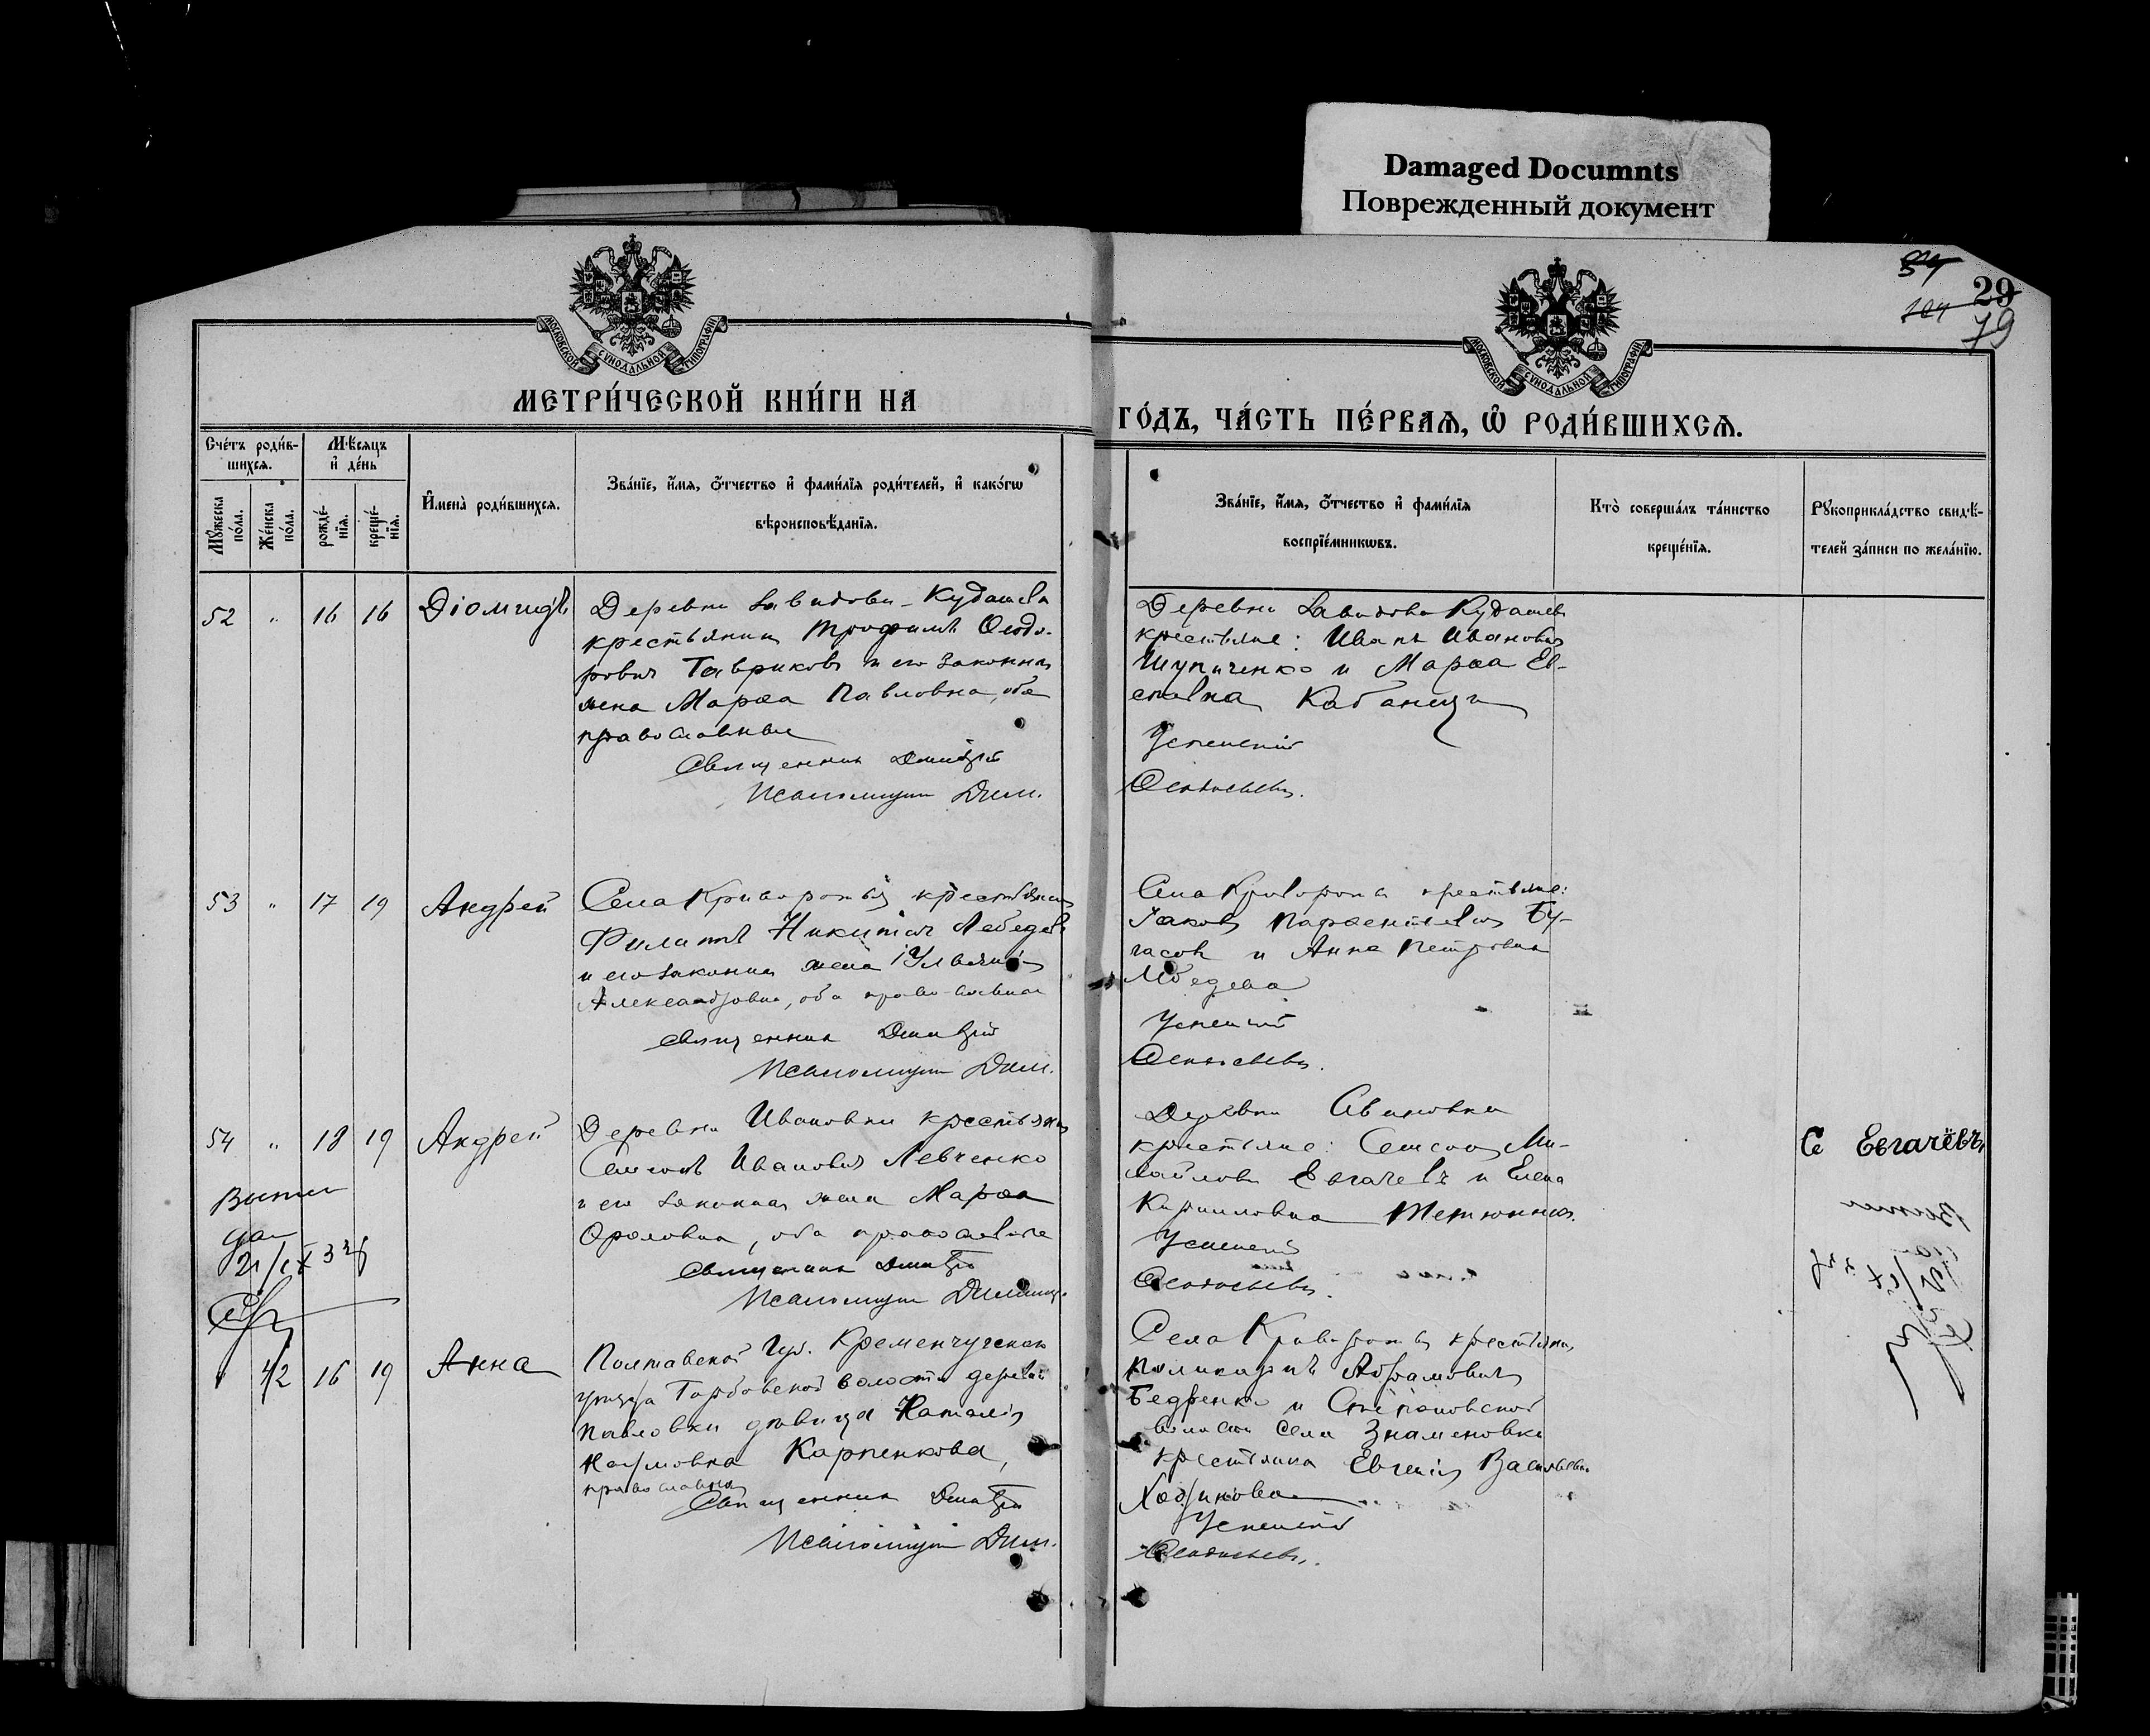 Damaged Documnts
Поврежденный документ
29
79
МОСКОВСКОЙ СѴНОДАЛЬНОЙ ТИПОГРАФІИ
МОСКОВСКОЙ СѴНОДАЛЬНОЙ ТИПОГРАФІИ
МЕТРИ́ЧЕСКОЙ КНИ́ГИ НА
ГО́ДЪ, ЧА́СТЬ ПЕ́РВАѦ, Ѽ РОДИ́ВШИХСѦ.
Сче́тъ роди́в-
шихсѧ.
Мѣ́сѧцъ
и҆ де́нь
Мꙋ́жеска
по́ла.
Же́нска
по́ла.
рожде́-
нїѧ.
креще́-
нїѧ.
И҆мена̀ роди́вшихсѧ.
Зва́нїе, и҆́мѧ, ѻ҆́тчество и҆ фами́лїѧ роди́телей, и҆ како́гѡ
вѣроисповѣ́данїѧ.
Зва́нїе, и҆́мѧ, ѻ҆́тчество и҆ фами́лїѧ
воспрїе́мникѡвъ.
Кто̀ соверша́лъ та́инство
креще́нїѧ.
Рꙋкоприкла́дство свидѣ́-
телей за́писи по жела́нїю.
52 " 16 16 Діомидъ
Деревни Давидови-Кудашева
крестьянин Трофимъ Ѳеодо-
ровичъ Гавриковъ и его законная
жена Марѳа Павловна, оба
православные
Священникъ Дмитрій
Псаломщикъ Дим.
Деревни Давидово Кудашев
крестьяне: Иванъ Ивановичъ
Шупиченко и Марѳа Ев-
Успенскій
Ѳеодосьевъ.
53 " 17 19 Андрей
Села Криворотья крестьянинъ
Филиппъ Никитичъ Лебедевъ
и его законная жена Іуліанія
Александровна, оба православные
Священникъ Дмитрій
Псаломщикъ Дим.
Села Криворотья крестьяне:
Іаковъ Парѳентьевичъ Бу-
гасов и Анна Петровна
Лебедева
Успенскій
Ѳеодосьевъ.
54 " 18 19 Андрей
Деревни Ивановки крестьянинъ
Самсонъ Ивановичъ Левченко
и его законная жена Марѳа
Фроловна, оба православные
Священникъ Дмитрій
Псаломщикъ Димитр.
Деревни Ивановки
крестьяне: Самсонъ Ми-
хайловъ Евгачевъ и Елена
Кирилловна Тетюнник.
Успенскій
Ѳеодосьевъ.
С Евгачёвъ
42 16 19 Анна
Полтавской Губ. Кременчугскаго
уѣзда Горбовской волости деревни
Павловки дѣвица Наталія
Наумовна Карпенкова,
православная
Священникъ Дмитрій
Псаломщикъ Дим.
Села Криворотья крестьянинъ
Поликарпъ Абрамовичъ
Бедренко и Степановской
волости села Знаменовки
крестьянка Евгенія Васильевна
Ходрикова
Успенскій
Ѳеодосьевъ.